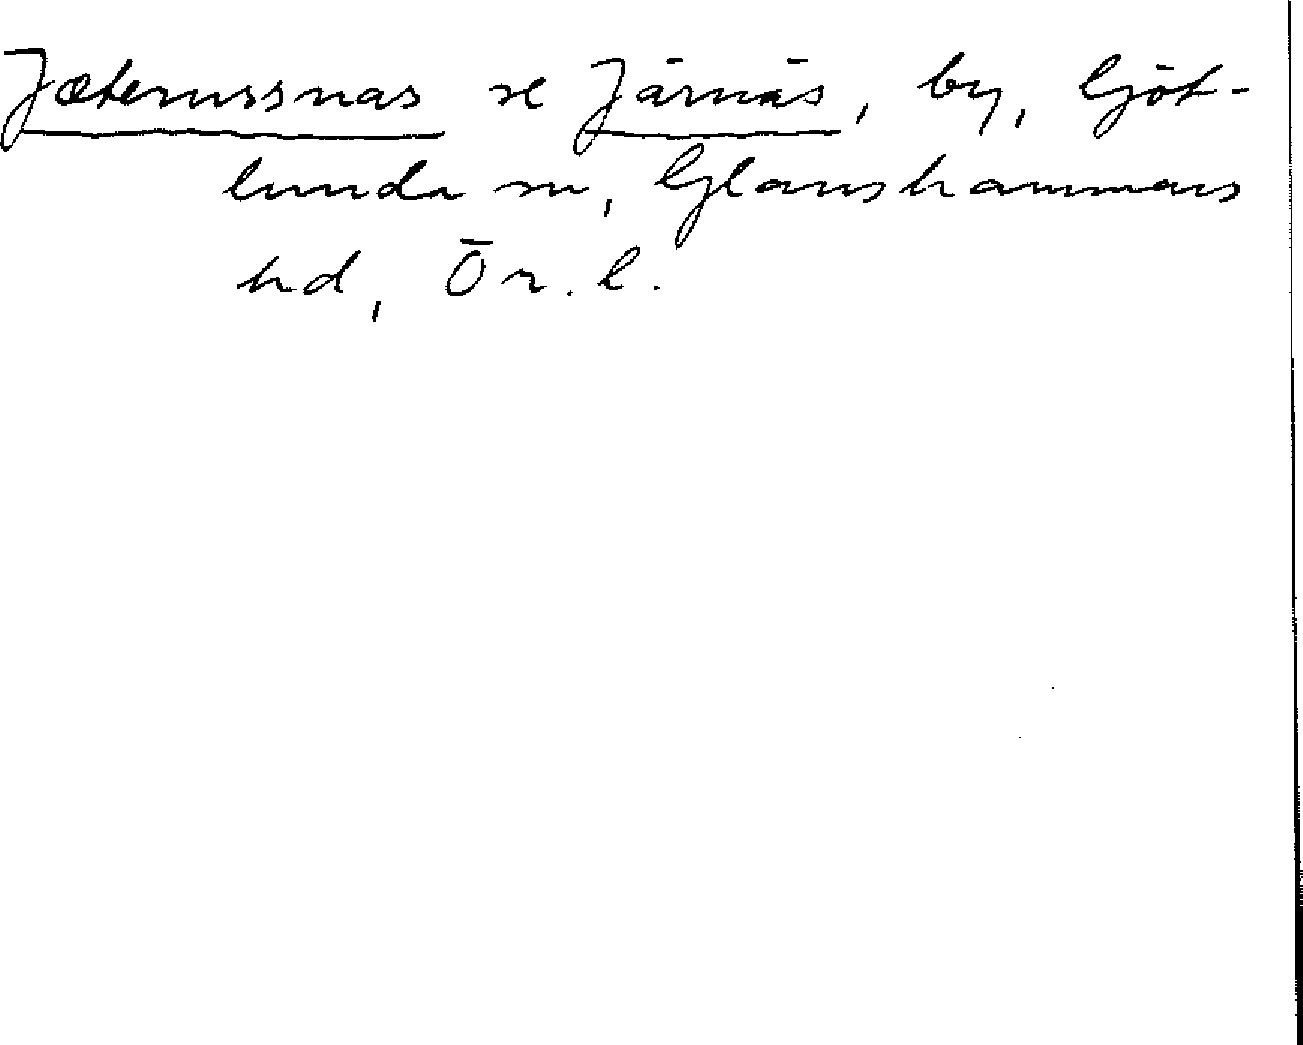 Jæterussnas se Järnäs, by, Göt-
lunda sn, Glanshammars
hd, Ör. l.